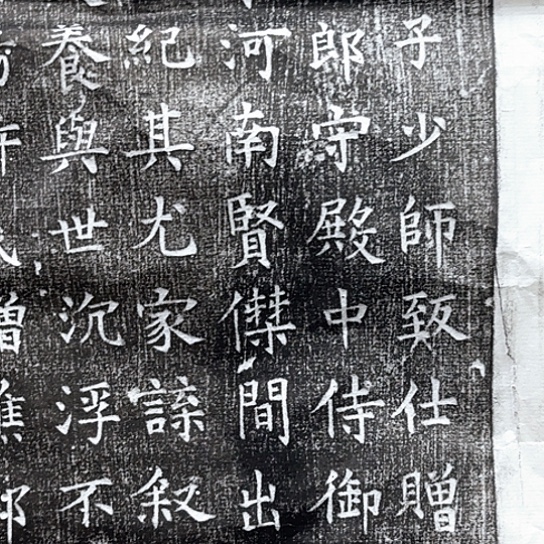 子少師致仕贈
郎守殿中侍御
河南賢傑間出
紀其尤家諜叙
養與世沉浮不